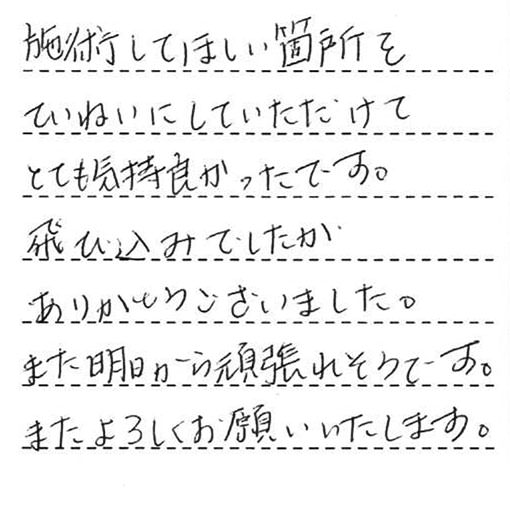 施術してほしい箇所を
ていねいにしていただけて
とても気持良かったです。
飛び込みでしたが
ありがとうございました。
また明日から頑張れそうです。
またよろしくお願いいたします。